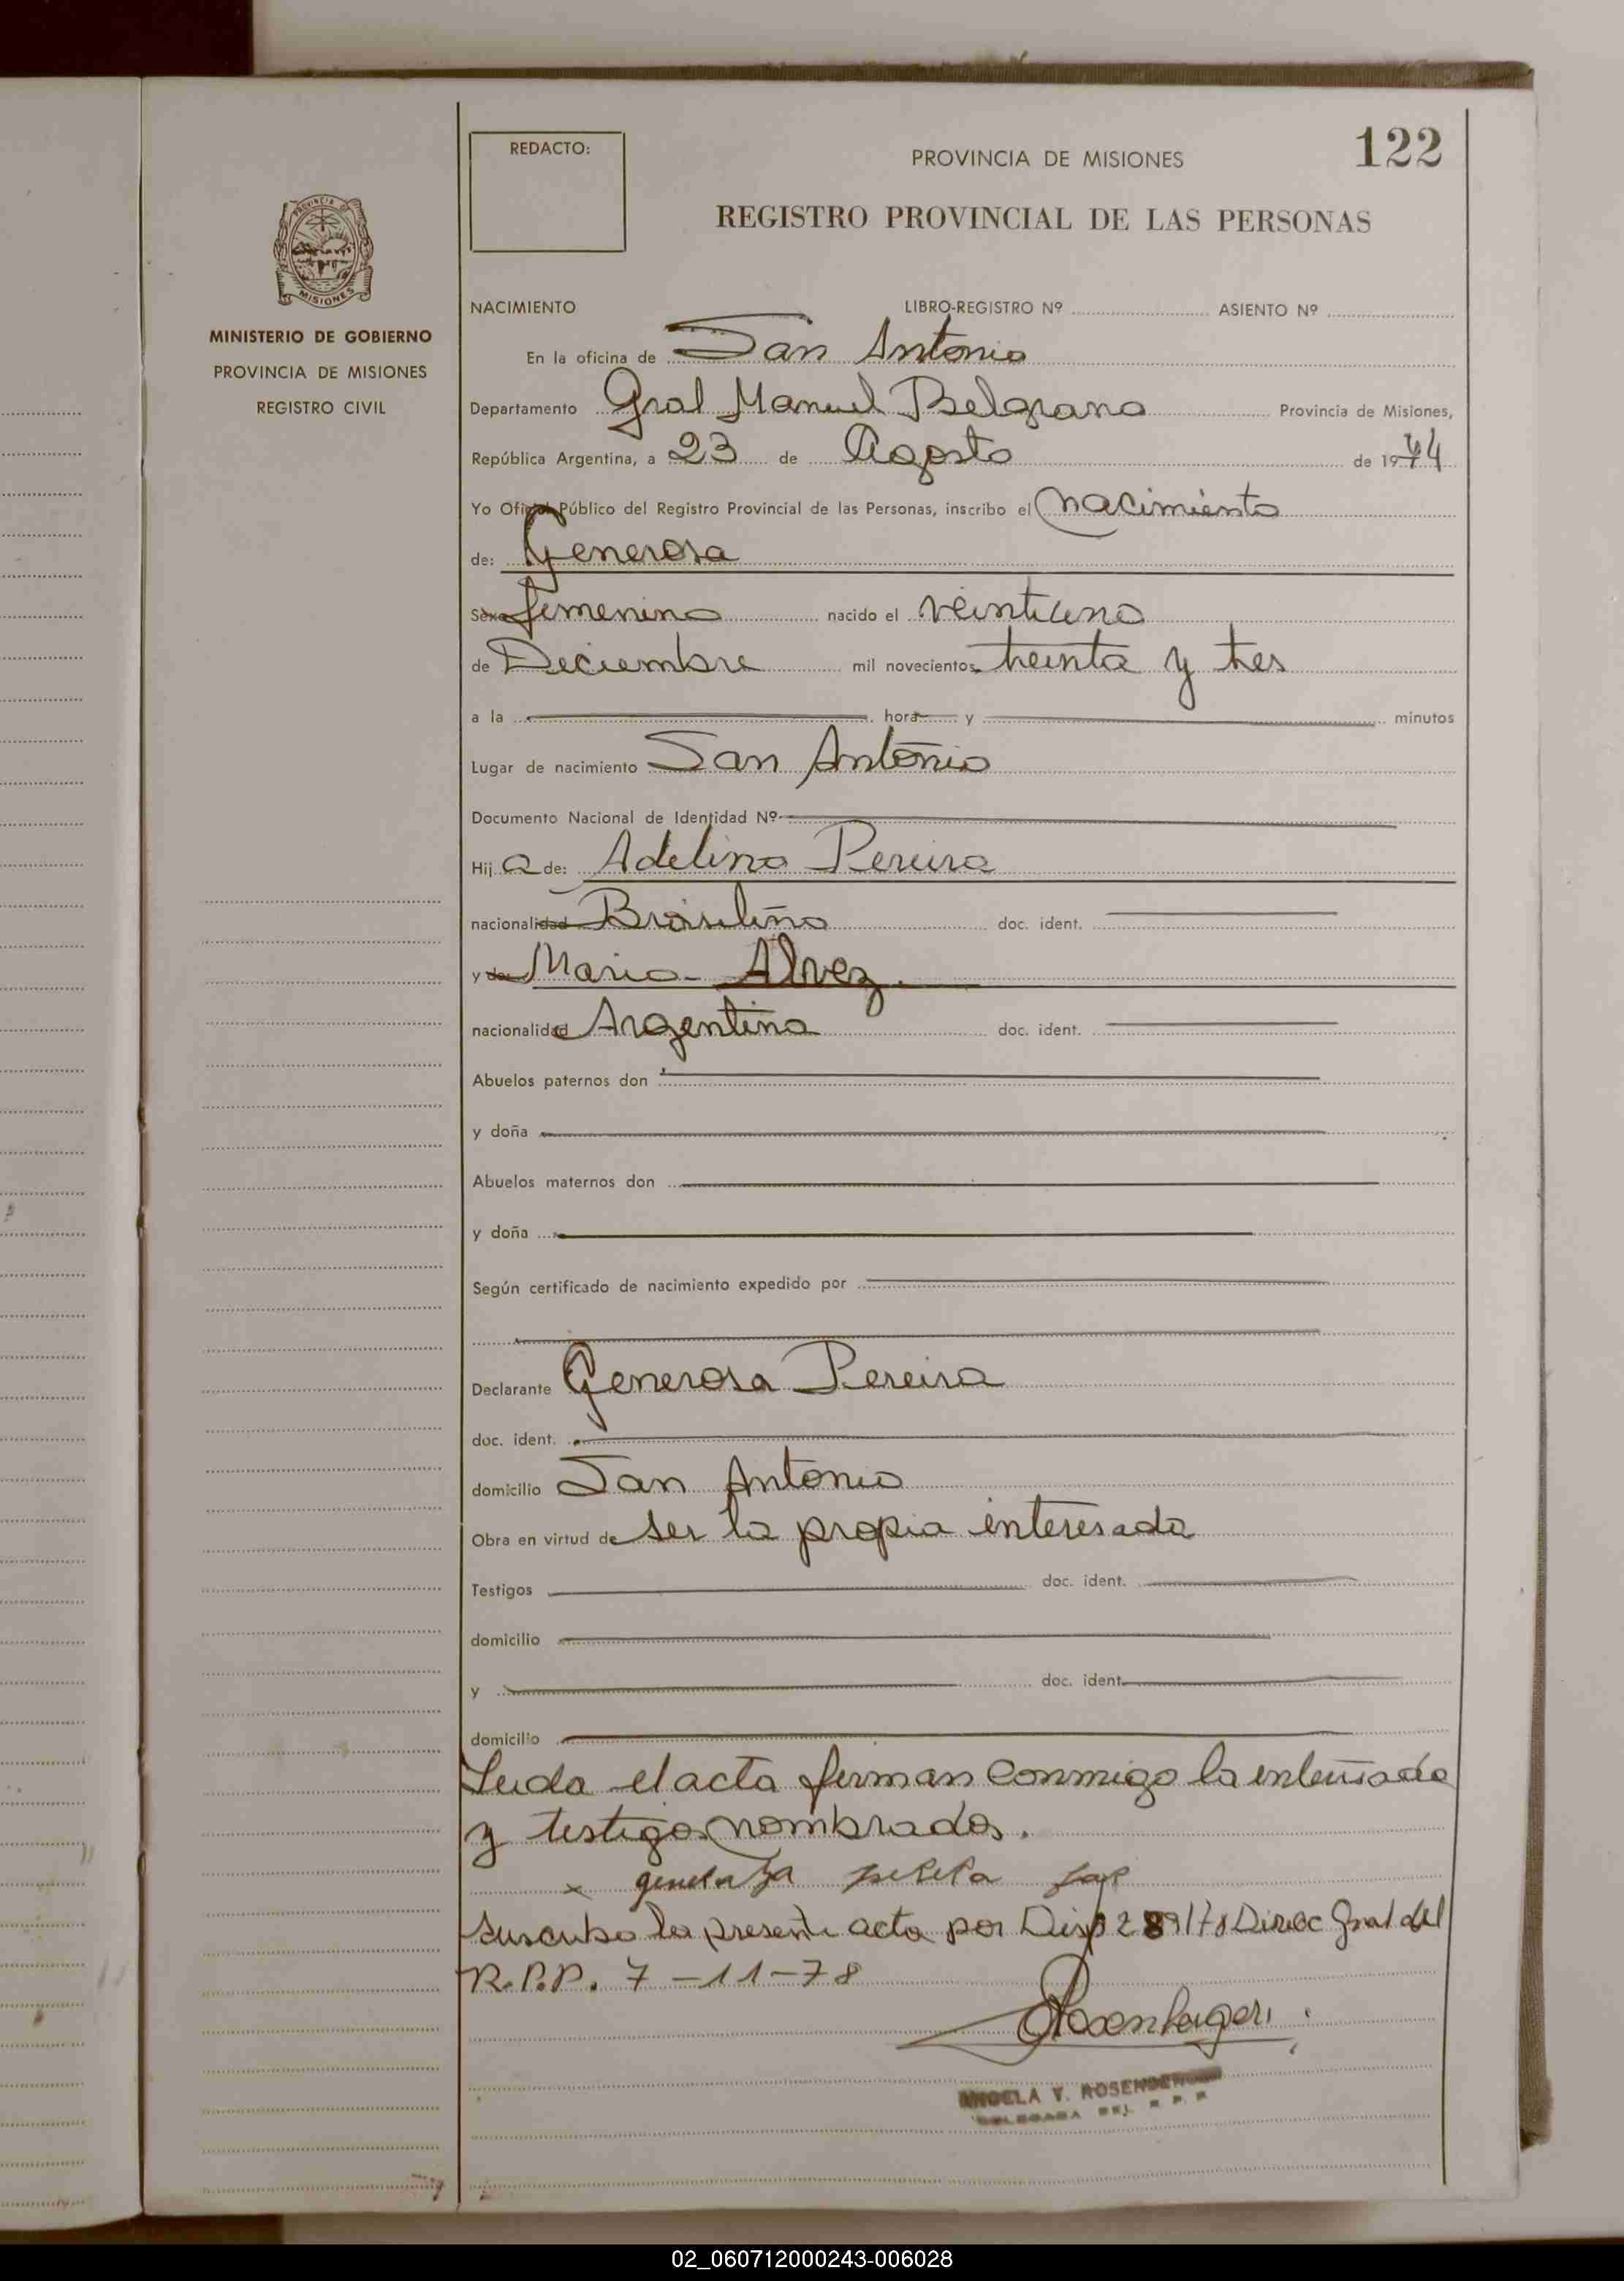 122
REDACTO:
PROVINCIA DE MISIONES
REGISTRO PROVINCIAL DE LAS PERSONAS
PROVINCIA DE
MISIONES
MINISTERIO DE GOBIERNO
PROVINCIA DE MISIONES
REGISTRO CIVIL
NACIMIENTO LIBRO-REGISTRO Nº ASIENTO Nº
En la oficina de San Antonio
Departamento Gral Manuel Belgrano Provincia de Misiones,
República Argentina, a 23 de Agosto de 1974
Yo Oficial Público del Registro Provincial de las Personas, inscribo el nacimiento
de: Generosa
Sexo femenino nacido el veintiuno
de Deciembre mil novecientos treinta y tres
a la hora y minutos
Lugar de nacimiento San Antonio
Documento Nacional de Identidad Nº
Hij a de: Adelino Pereira
nacionalidad Brasileño doc. ident.
y de: Maria Alvez.
nacionalidad Argentina doc. ident.
Abuelos paternos don
y doña
Abuelos maternos don
y doña
Según certificado de nacimiento expedido por
Declarante Generosa Pereira
doc. ident.
domicilio San Antonio
Obra en virtud de ser la propia interesada
Testigos doc. ident.
domicilio
y doc. ident.
domicilio
Leida el acta firman conmigo la interesada
y testigos nombrados.
x
Suscribo la presente acta por Disp 289/78 Direc Gral del
R.P.P. 7-11-78
ANGELA V.
DELEGADA DEL R. P. P.
02_060712000243-006028